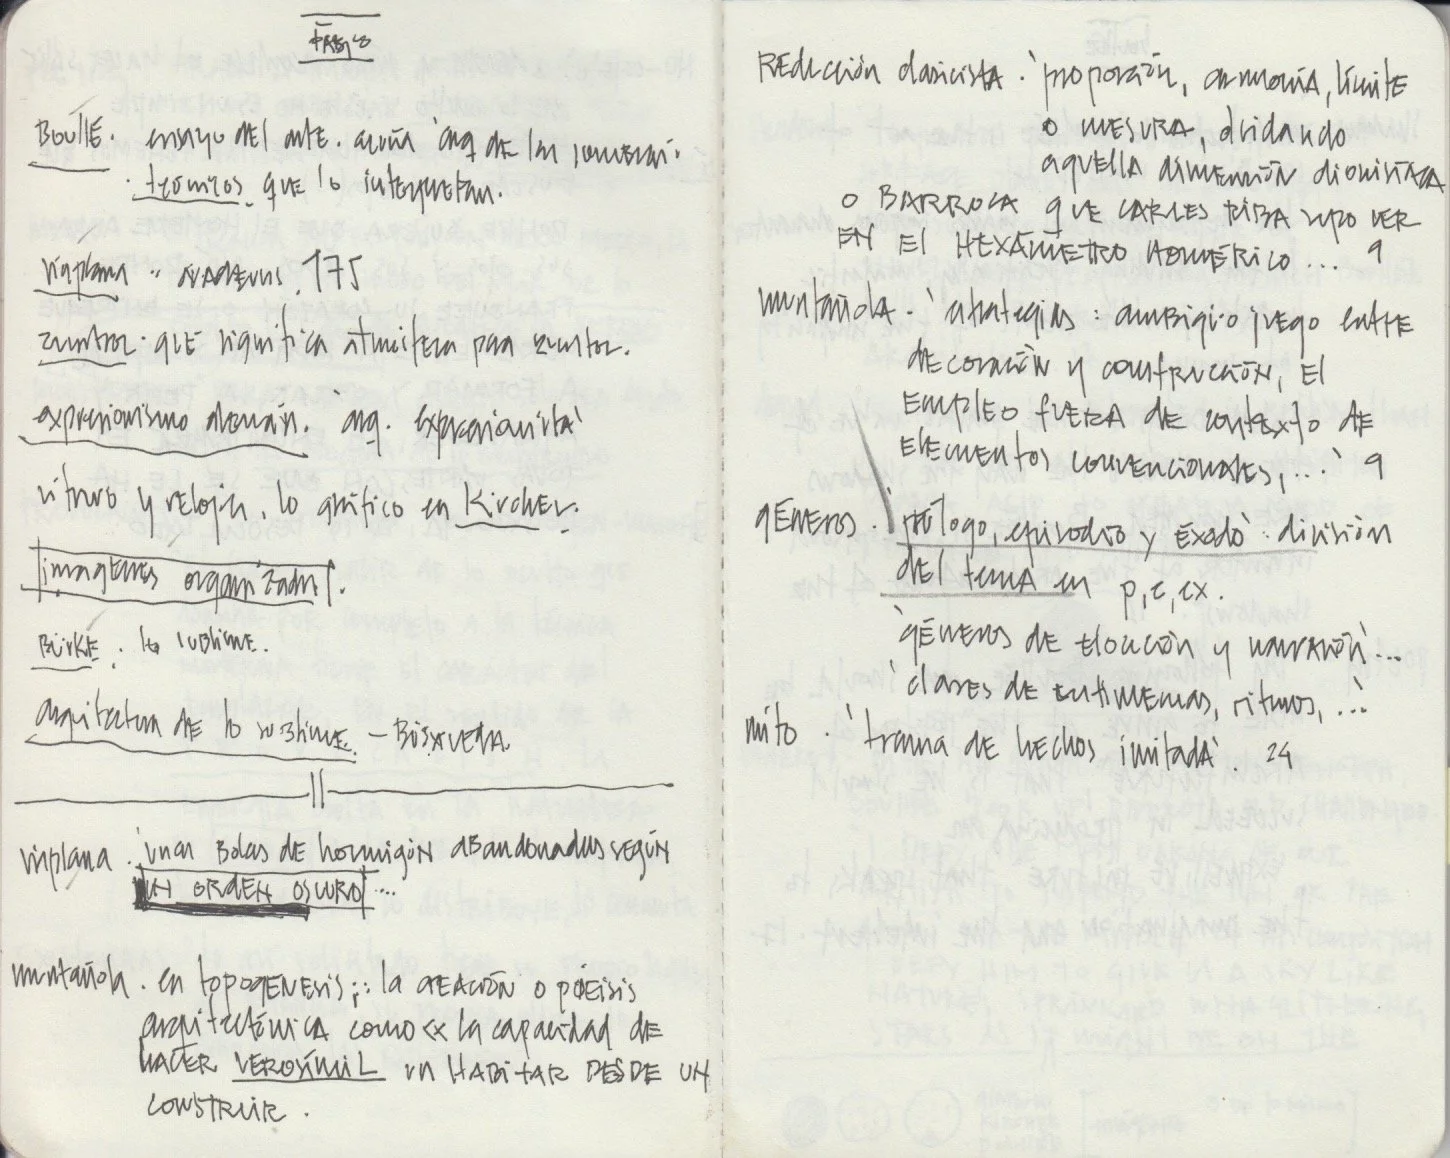 BOULLÉ. ensayo del arte.
técnicos que lo interpretan.
viaplana " QUADERNS. 175
zumtor. qué significa atmósfera para zumtor.
expresionismo alemán. arq. expresionista
vitruvio y relojes, lo gráfico en Kircher.
imagenes organizador
BURKE. lo sublime.
arquitectura DE lo sublime. – BÚSQUEDA
viaplana. 'unas BOLAS DE hormigón abandonadas según
UN ORDEN OSCURO' ...
muntañola. en topogénesis: la creación o póeisis
arquitectónica como << la capacidad de
HACER VEROSÍMIL un HABITAR DESDE UN
CONSTRUIR.
REDUCCIÓN clasicista. 'proporción, armonía, límite
o mesura, olvidando
aquella dimensión dionisíaca
o BARROCA que CARLES RIBA supo VER
EN El HEXÁMETRO HOMÉRICO ... 9
muntañola. 'estrategias: ambiguo juego entre
decoración y construcción, El
Empleo fuera de contexto de
Elementos convencionales, ...' 9
géneros. 'prólogo, episodio y éxodo' división
del tema en p, e, ex.
'géneros de elocución y narración' ...
'clases de entimemas, ritmos, ...'
mito. 'trama de hechos imitada' 24